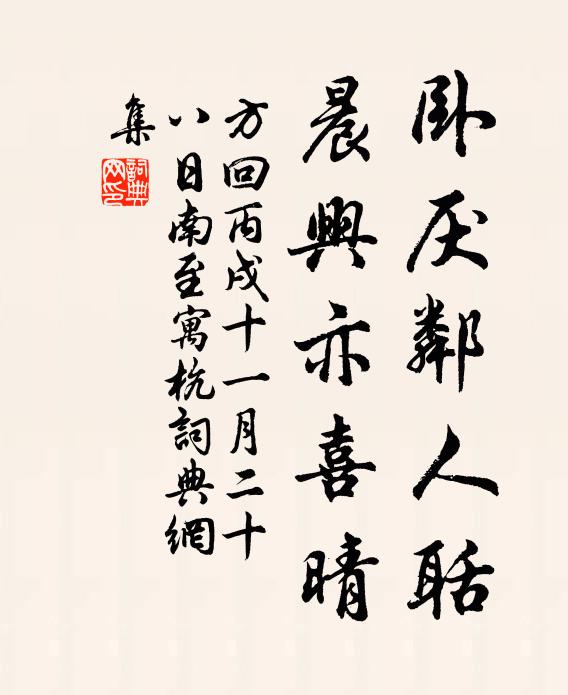 卧厌鄰人聒
晨興亦喜晴
方回丙戌十一月二十
八日南至寓杭詞典網
集
詞典
网印